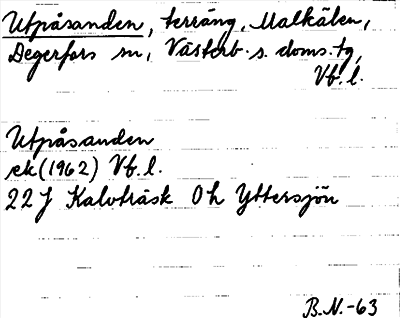 Utpåsanden, terräng, Malkälen,
Degerfors sn, Västerb. s. doms. tg,
Vb. l.
Utpåsanden
ek (1962) Vb. l.
22 J Kalvträsk 0 h Yttersjön
B.N.-63